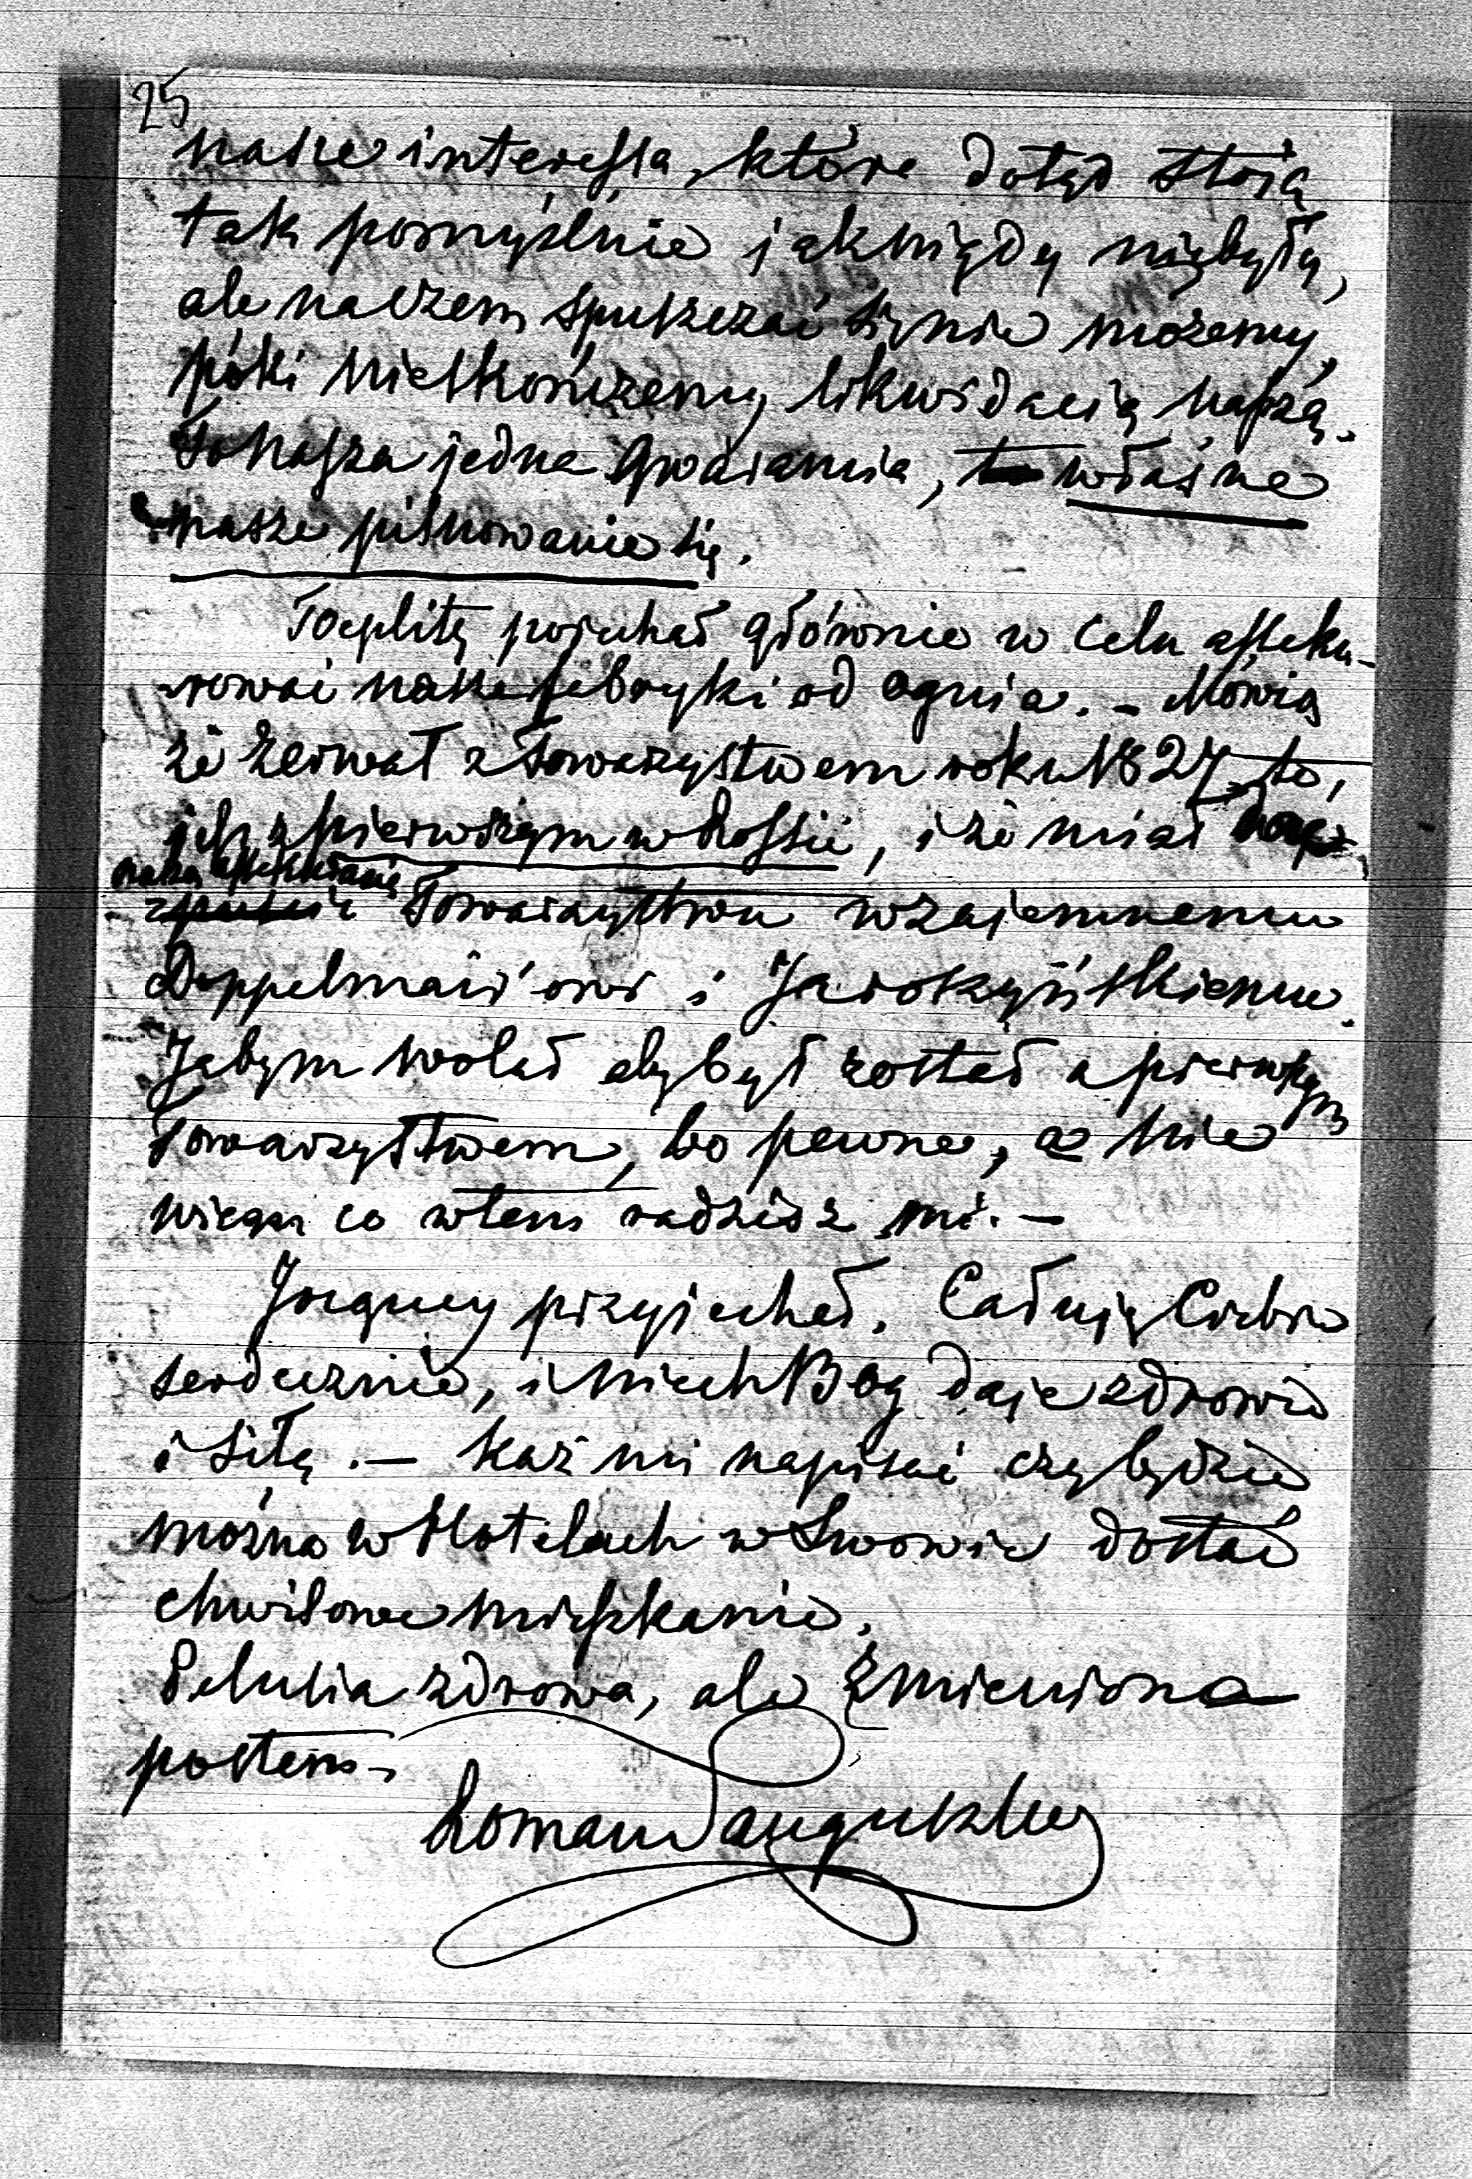 25
nasze interessa, które dotąd stoją
tak pomyślnie jak nigdy niebyły,
ale na czem spuszczać się nie możemy,
póki nieskończemy likwidacią naszą.
To nasza jedna gwarancia, właśne
nasze pilnowanie się.
Toeplitz pojechał głównie w celu asseku-
rować nasze fabryki od ognia. – Mówią
że zerwał z Towarzystwem roku 1827 to,
jest z pierwszym w Rossii, i że miał
naszą
Towarzystwu wzajemnemu
Doppelmair'owi i Jaroszyńskiemu.
Jabym wolał aby był został z pierwszym
Towarzystwem, bo pewne, a nie
wiem co w tem radzisz mi. –
przyjechał. Całuję Ciebie
serdecznie, i niech Bog daje zdrowie
i siłę. – Każ mi napisać czy będzie
można w Hotelach w Lwowie dostać
chwilowe mieszkanie.
zdrowa, ale zmieniona
postem.
Roman Sanguszko